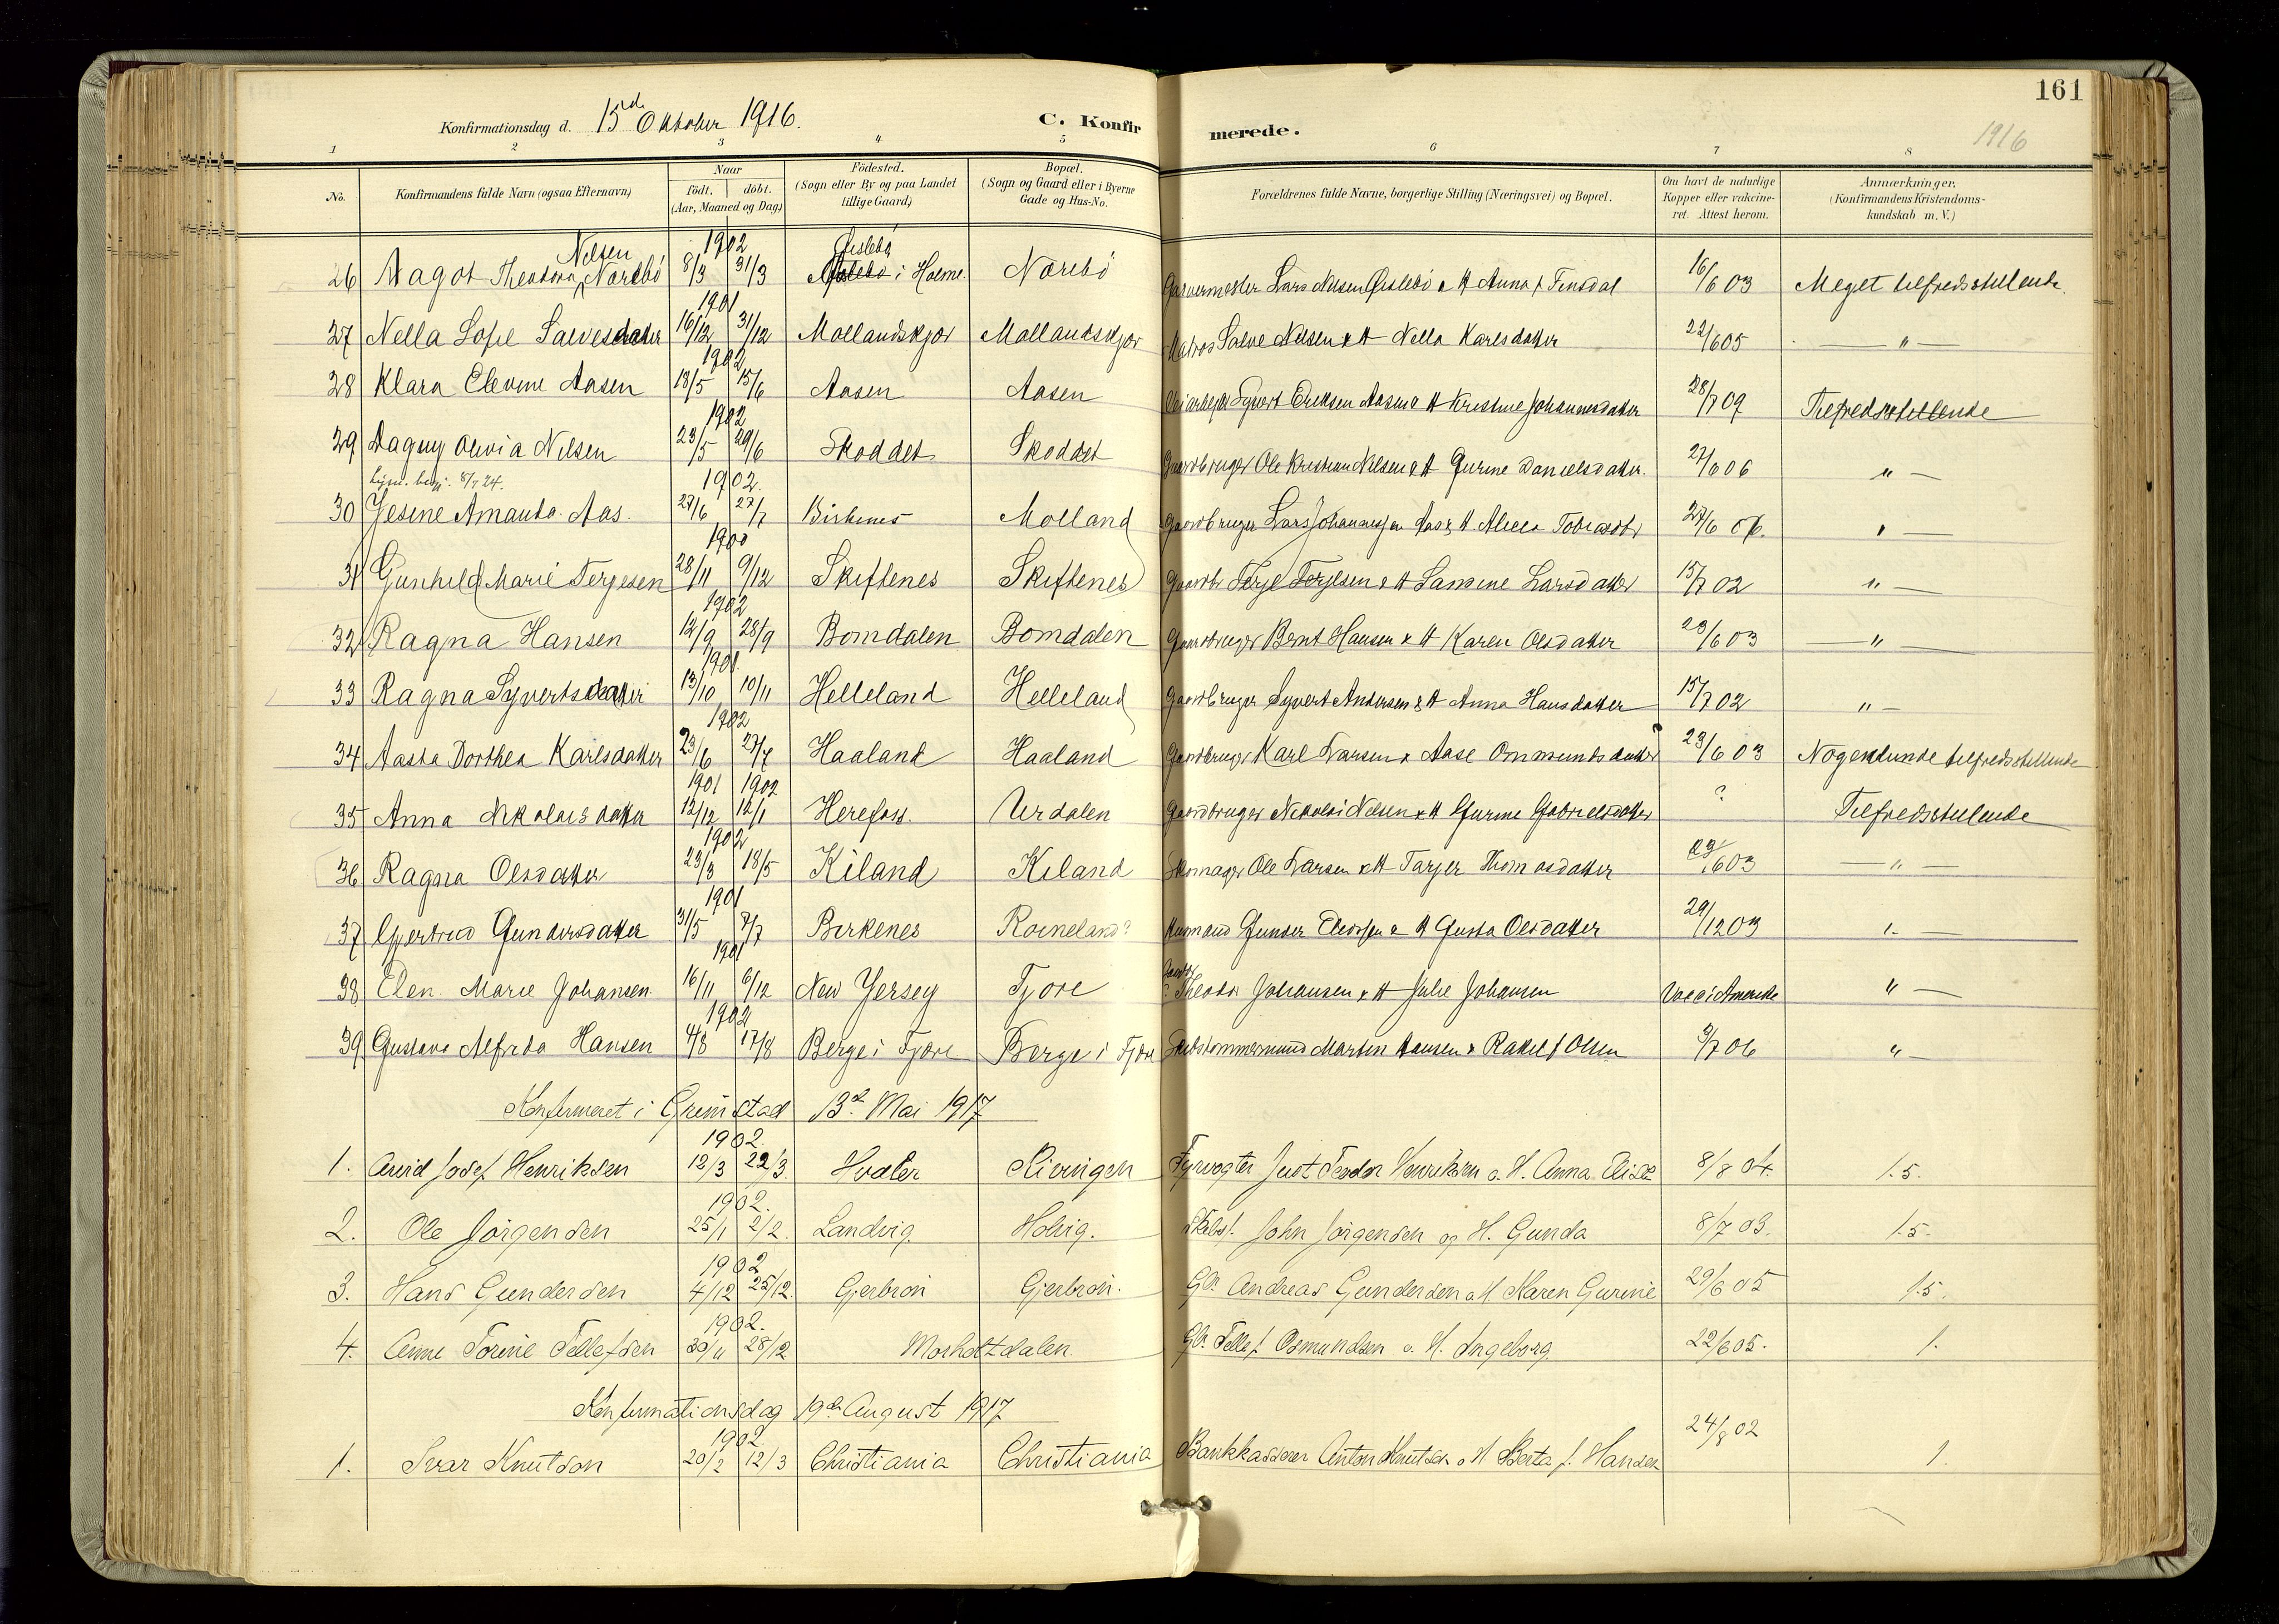 161
1916
Konfirmationsdag d. 15de Oktober 1916.
C. Konfirmerede.
1 2 3 4 5 6 7 8
No.
Konfirmandens fulde Navn (ogsaa Efternavn)
Naar
født. døbt.
(Aar, Maaned og Dag)
Fødested.
(Sogn eller By og paa Landet
tillige Gaard)
Bopæl.
(Sogn og Gaard eller i Byerne
Gade og Hus-No.
Forældrenes fulde Navne, borgerlige Stilling (Næringsvei) og Bopæl.
Om havt de naturlige
Kopper eller vakcine-
ret. Attest herom.
Anmærkninger.
(Konfirmandens Kristendoms-
kundskab m. V.)
Nelsen 1902 Øislebø
26 Magot Theodora Nørebø 8/3 31/3 i Holme Nørebø Garvermester Lars Nilsen Øislebø & H Anna f Finsdal 16/6 03 Meget tilfredsstillende.
1901
27 Nella Sofie Salvesdatter 16/12 31/12 Mollandskjær Mollandskjær Matros Salve Nilsen & H Nella Karlsdatter 22/6 05 — " —
1902
28 Klara Elevine Aasen 18/5 15/6 Aasen Aasen Syvert Eriksen Aasen & H Kristine Johannesdatter 28/7 09 Tilfredsstillende
1902
29 Dagny Olivia Nilsen 23/5 29/6 Skoddet Skoddet Gaardbruger Ole Kristian Nilsen & H Gurine Danielsdatter. 27/6 06 " —
8/7 24. 1902.
30 Jesine Amanda Aas. 27/6 27/7 Birkenes Molland Gaardbruger Lars Johannesen Aas & H. Tobiasdtr 27/6 06. " —
1900
31 Gunhild Marie Terjesen 28/11 9/12 Skiftenes Skiftenes Gaardbr Terje Terjesen & H Samine Larsdatter 15/7 02 " —
1902
32 Ragna Hansen 12/9 28/9 Bomdalen Bomdalen Gaardbruger Bernt Hansen & H Karen Olsdatter 23/6 03 — " —
1901.
33 Ragna Syvertsdatter 13/10 10/11 Helleland Helleland Gaardbruger Syvert Andersen & H Anna Hansdatter 15/7 02 " —
1902
34 Aasta Dorthea Karlsdatter 23/6 27/7 Haaland Haaland Gaardbruger Karl Larsen & Aase Ommundsdatter 23/6 03 Nogenlunde tilfredsstillende
1901 1902
35 Anna Nikolaisdatter 12/12 12/1 Herefoss. Urdalen Gaardbruger Nikolai Nilsen & H Gurine Gabrielsdatter ? Tilfredsstillende
1902
36 Ragna Olsdatter 23/3 18/5 Kiland Kiland Skomager Ole Larsen & H Tarjer Thomasdatter 23/6 03 — " —
1901
37 Gjertrud Gundersdatter 31/5 7/7 Birkenes Roineland? Gunder & H Gusta Olsdatter 29/12 03 " —
1901
38 Elen Marie Johansen 16/11 6/12 New Yersey Fjære Theodor Johansen & H Julie Johansen Vacc i Amerika " —
1902
39 Gustava Alfreda Hansen 4/8 17/8 Berge i Fjære Berge i Fjære Skibstømmermand Martin Hansen & Rakel f Olsen 3/7 06 " —
Konfirmeret i Grimstad 13de Mai 1917
1902.
1. Arvid Josef Henriksen 12/3 22/3. Hvaler Rivingen Fyrvogter Just Teodor Henriksen o. H. Anna Elise 8/8 04. 1.5.
1902.
2. Ole Jörgensen 25/1 2/2. Landvig. Holvig. Skibst. John Jörgensen og H. Gunda 8/7 03. 1.5.
1902
3. Hans Gundersen 4/12 25/12. Gjerbron Gjerbron. Gbr. Andreas Gundersen o H. Maren Gurine 29/6 05 1.5.
1902.
4. Anne Torine Tellefsen 30/11 28/12 Morholtdalen Gbr. Tellef Osmundsen o. H. Ingeborg. 22/6 05. 1.
Konfirmationsdag 19de August 1917
1902.
1. Ivar Knutson 20/2 12/3 Christiania Christiania Bankkasserer Anton Knutson o H Berta f. Hansen 24/8 02 1.